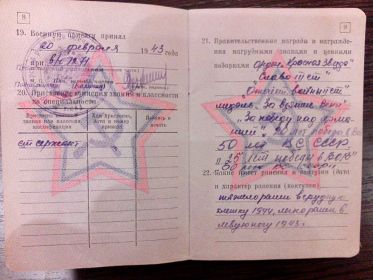 8
19. Военную присягу принял
20 февраля 1943 года
при
20. Присвоение
по специальности
Присвоено
звание или классность,
квалификация
Кем присвоено,
дата и номер
приказа
Подпись и
печать
ст сержант
9
21. Правительственные награды и награждения
нагрудными знаками и ценными
подарками Орден "Красная Звезда"
"Слава III ст"
"Отечест. войны II ст"
медали "За взятие
"За победу над Герма
нией", 20 лет победы в ВОВ
50 лет ВС СССР
25 лет победы в ВОВ
22. Какие имеет ранения и контузии (дата
и характер ранения (контузии)
тяжело ранен в грудную
клетку 1944, легко ранен в
левую ногу 1943 г.